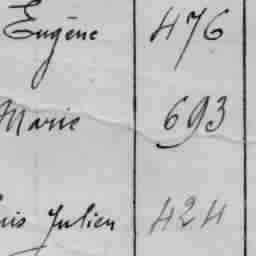 Eugène 476
Marie 693
Julien 424